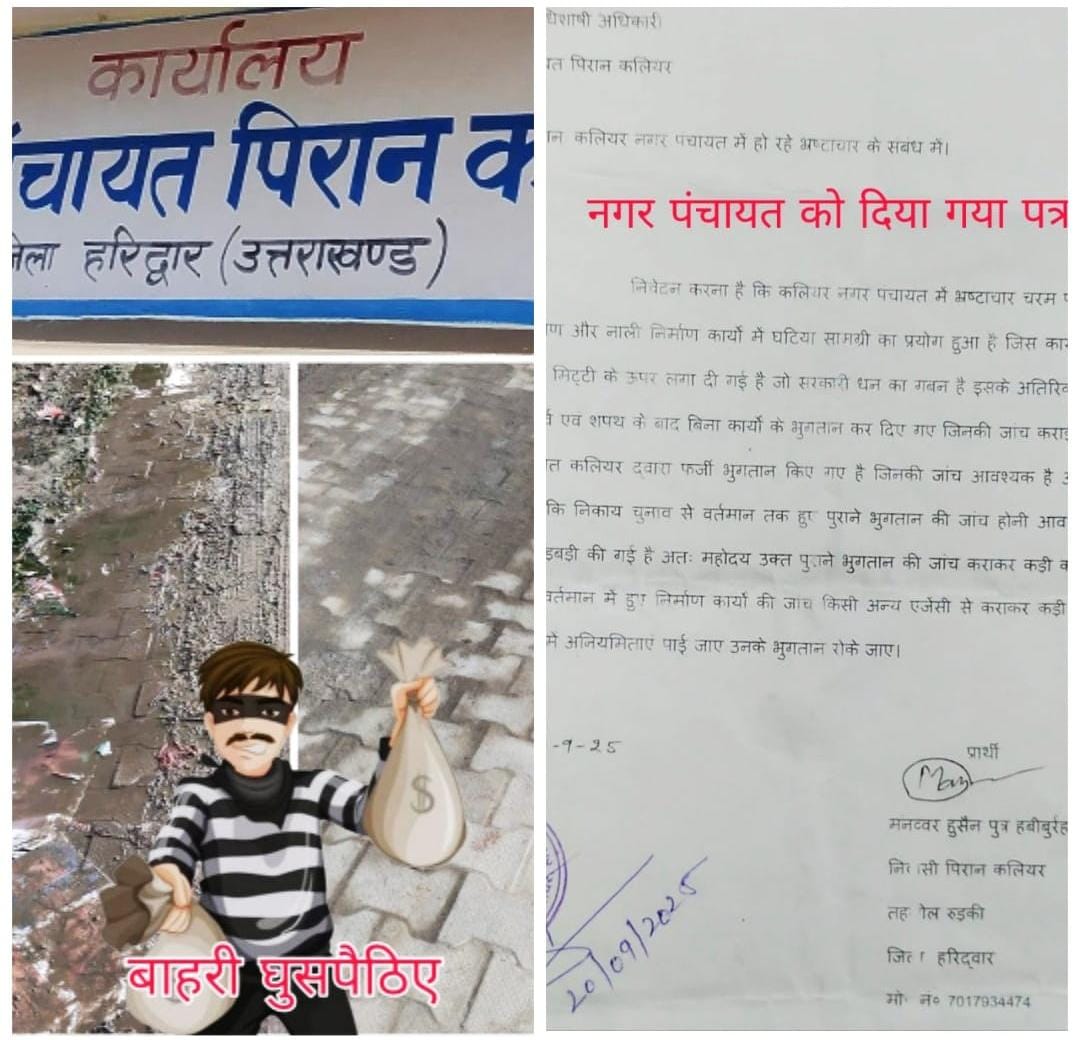 कार्यालय
पंचायत पिरान क
जिला हरिद्वार (उत्तराखण्ड)
$
बाहरी घुसपैठिए
अधिकारी
पिरान कलियर
कलियर नगर पंचायत में हो रहे भ्रष्टाचार के संबंध में।
नगर पंचायत को दिया गया पत्र
निवेदन करना है कि कलियर नगर पंचायत में भ्रष्टाचार चरम
और नाली निर्माण कार्यो में घटिया सामग्री का प्रयोग हुआ है जिस
मिट्टी के ऊपर लगा दी गई है जो सरकारी धन का गबन है इसके
एवं शपथ के बाद बिना कार्यो के भुगतान कर दिए गए जिनकी जांच
कलियर द्वारा फर्जी भुगतान किए गए है जिनकी जांच आवश्यक है
कि निकाय चुनाव से वर्तमान तक हुए पुराने भुगतान की जांच होनी
की गई है अतः महोदय उक्त पुराने भुगतान की जांच कराकर कड़ी
वर्तमान में हुए निर्माण कार्यो की जांच किसी अन्य एजेंसी से कराकर कड़ी
में अनियमिताएं पाई जाए उनके भुगतान रोके जाए।
-9-25
प्रार्थी
मनव्वर हुसैन पुत्र
निवासी पिरान कलियर
तहसील रुड़की
जिला हरिद्वार
मो० नं० 7017934474
20/09/2025